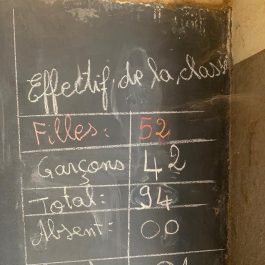 Effectif de la classe
Filles: 52
Garçons 42
Total: 94
Absent: 00